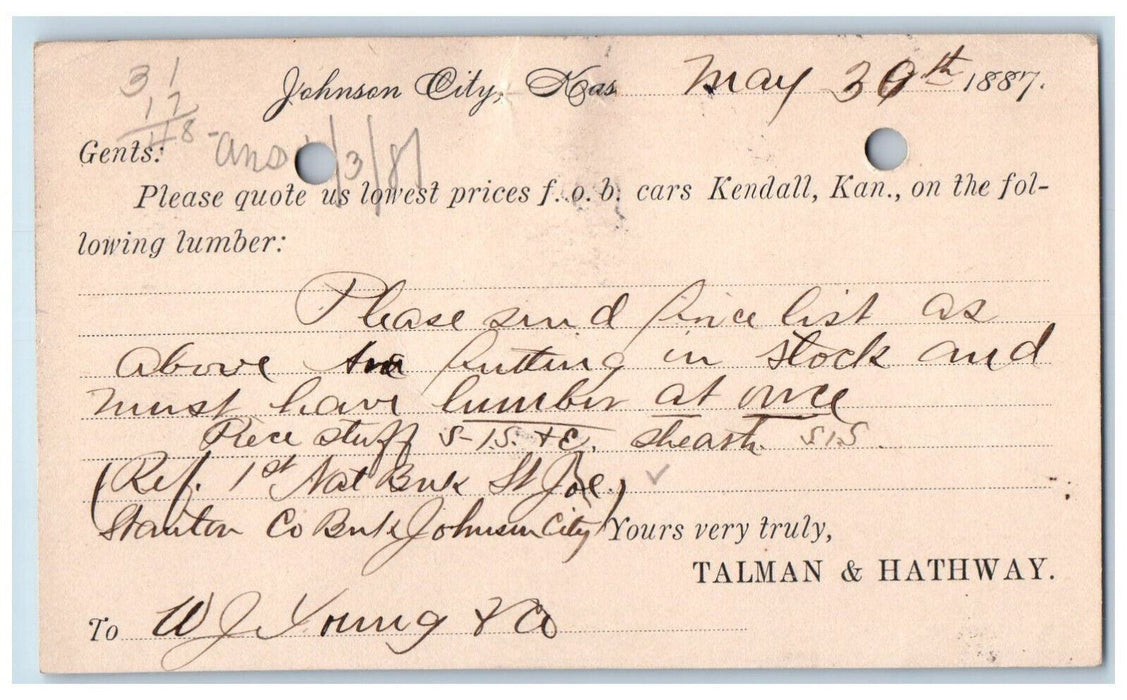 31
12
118
Johnson City, Kas May 30th 1887.
Gents: ans /3/87
Please quote us lowest prices f. o. b. cars Kendall, Kan., on the fol-
lowing lumber:
Please send price list as
above putting in stock and
must have lumber at once
Piece stuff S-1S. & E. sheath. S1S.
(Ref. 1st Nat Bnk St Joe,
Stanton Co Bnk Johnson City) Yours very truly,
TALMAN & HATHWAY.
To W J Young & Co